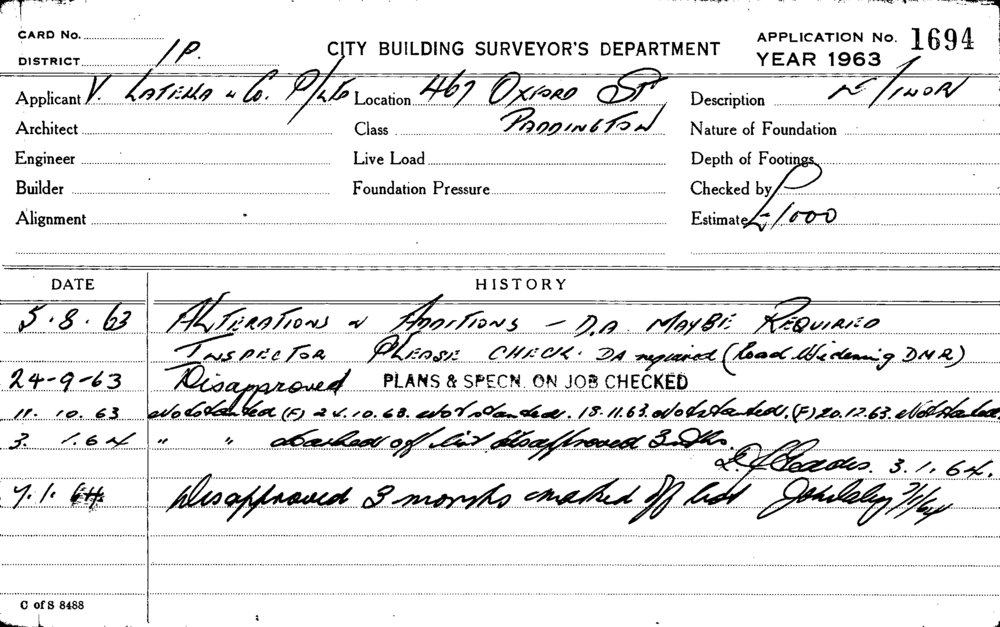 CARD No.
DISTRICT 1P.
CITY BUILDING SURVEYOR'S DEPARTMENT
APPLICATION No. 1694
YEAR 1963
Applicant V. & Co. P/Ltd Location 467 OXFORD ST Description
Architect Class PADDINGTON Nature of Foundation
Engineer Live Load Depth of Footings
Builder Foundation Pressure Checked by P
Alignment Estimate £1000
DATE HISTORY
5.8.63 ALTERATIONS & ADDITIONS - D.A. MAYBE REQUIRED
INSPECTOR PLEASE CHECK. DA required (Road Widening DMR)
24-9-63 Disapproved PLANS & SPECN. ON JOB CHECKED
11.10.63 Not started (F) 24.10.63. Not started. 18.11.63. Not started. (F) 20.12.63. Not started.
3.1.64 " " Marked off list disapproved 3 mths.
3.1.64.
7.1.64 Disapproved 3 months marked off list 7/1/64
C of S 8488